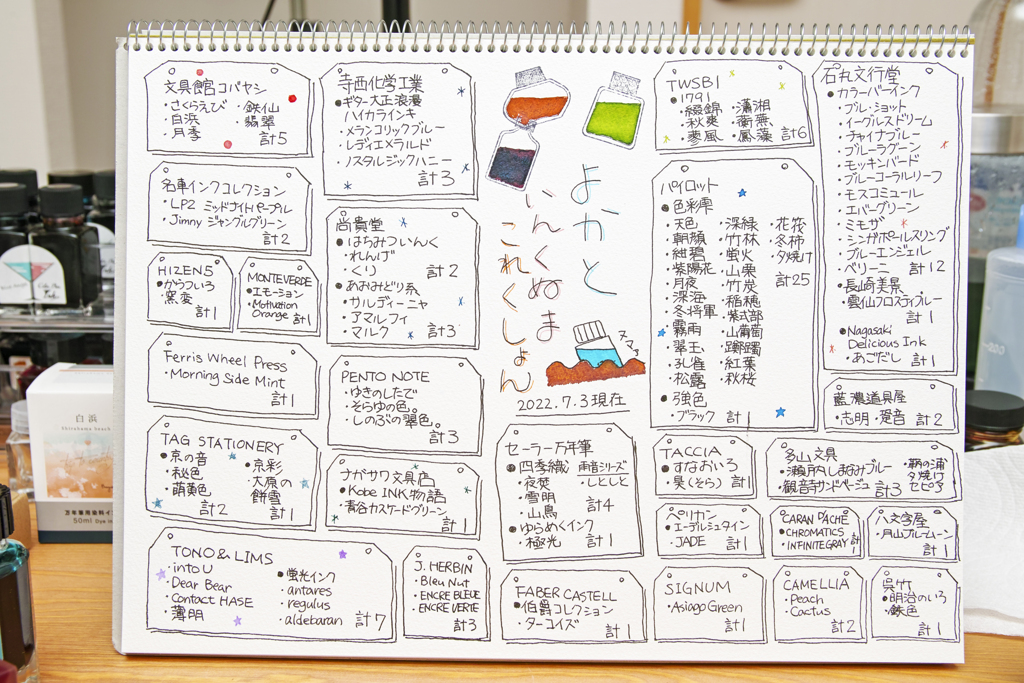 文具館コバヤシ
・さくらえび
・白浜
・月季
・鉄仙
・翡翠
計5
名車インクコレクション
・LP2 ミッドナイトパープル
・Jimny ジャングルグリーン
計2
HIZEN5
●からついろ
・窯変
計1
MONTEVERDE
●エモーション
・Motivation
Orange
計1
Ferris Wheel Press
・Morning Side Mint
計1
TAG STATIONERY
●京の音
・秘色
・萌黄色
計2
・京彩
・大原の
餅雪
計1
TONO & LIMS
・into U
・Dear Bear
・Contact HASE
・薄明
●蛍光インク
・antares
・regulus
・aldebaran
計7
寺西化学工業
●ギター大正浪漫
・ハイカラインキ
・メランコリックブルー
・レディエメラルド
・ノスタルジックハニー
計3
尚貴堂
●はちみついんく
・れんげ
・くり
計2
●あおみどり系
・サルディーニャ
・アマルフィ
・マルク
計3
PENTO NOTE
・ゆきのしたで
・そらゆの色。
・しのぶの翠色。
計3
ナガサワ文具店
●Kobe INK物語
・青谷カスケードグリーン
計1
J. HERBIN
・Bleu Nut
・ENCRE BLEUE
・ENCRE VERTE
計3
よかと
いんくぬま
これくしょん
2022.7.3現在
セーラー万年筆
●四季織
・夜焚
・雪明
・山鳥
・雨音シリーズ
・しとしと
計4
●ゆらめくインク
・極光
計1
FABER CASTELL
●伯爵コレクション
・ターコイズ
計1
TWSBI
●1791
・綴錦
・秋爽
・蓼風
・瀟湘
・蘅蕪
・鳳藻
計6
パイロット
●色彩雫
・天色
・朝顔
・紺碧
・紫陽花
・月夜
・深海
・冬将軍
・霧雨
・翠玉
・孔雀
・松露
・深緑
・竹林
・蛍火
・山栗
・竹炭
・稲穂
・紫式部
・山葡萄
・躑躅
・紅葉
・秋桜
・花筏
・冬柿
・夕焼け
計25
●強色
・ブラック
計1
TACCIA
●すなおいろ
・昊(そら)
計1
ペリカン
・エーデルシュタイン
・JADE
計1
SIGNUM
・Asiago Green
計1
石丸文行堂
●カラーバーインク
・ブル・ショット
・イーグルスドリーム
・チャイナブルー
・ブルーラグーン
・モッキンバード
・ブルーコーラルリーフ
・モスコミュール
・エバーグリーン
・ミモザ
・シンガポールスリング
・ブルーエンジェル
・ベリーニ
計12
●長崎美景
・雲仙フロスティブルー
計1
●Nagasaki
Delicious Ink
・あごだし
計1
藍濃道具屋
・志明
・跫音
計2
多山文具
・瀬戸内しまなみブルー
・観音寺サンドベージュ
・鞆の浦
夕焼け
セピタ
計3
CARAN D'ACHE
●CHROMATICS
・INFINITE GRAY
計1
八文字屋
・月山ブルームーン
計1
CAMELLIA
・Peach
・Cactus
計2
呉竹
●明治のいろ
・鉄色
計1
白浜
Shirahama beach
50ml